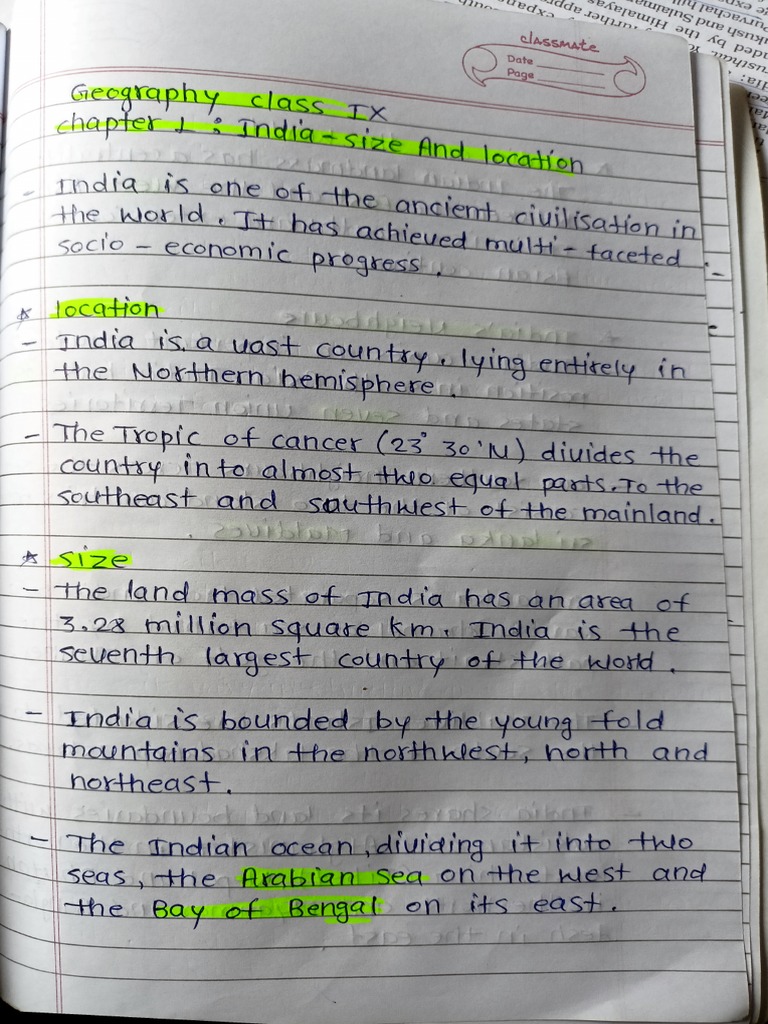 classmate
Date
Page
Geography class IX
chapter 1 : India - size And location
- India is one of the ancient civilisation in
the world. It has achieved multi - faceted
socio - economic progress.
* location
- India is a vast country. lying entirely in
the Northern hemisphere.
- The Tropic of cancer (23° 30'N) divides the
country into almost two equal parts. To the
southeast and southwest of the mainland.
* size
- the land mass of India has an area of
3.28 million square km. India is the
seventh largest country of the world.
- India is bounded by the young fold
mountains in the northwest, north and
northeast.
- The Indian ocean, dividing it into two
seas, the Arabian sea on the west and
the Bay of Bengal on its east.